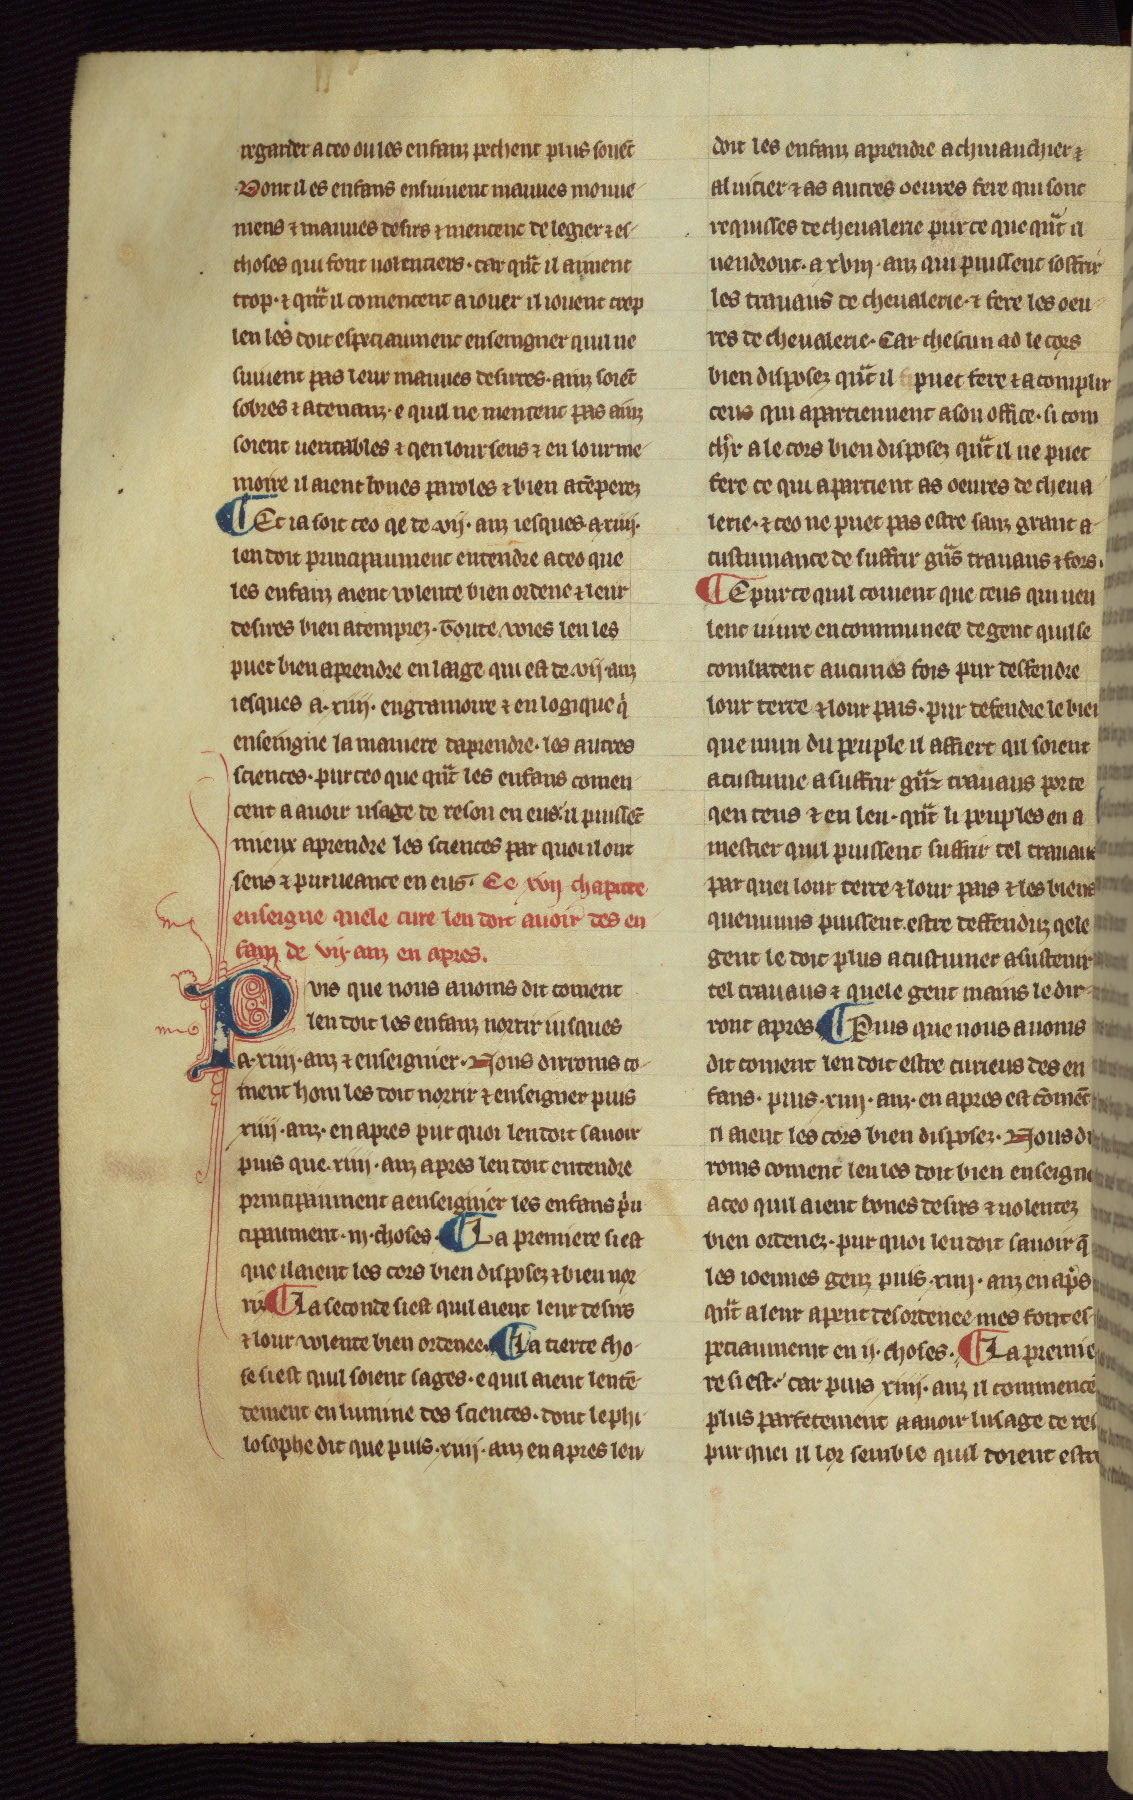 regarder a ceo ou les enfanz pechent plus souẽt
Dont il es enfans ensuiuent mauues mouue-
mens ⁊ mauues desirs ⁊ mentent de legier ⁊ es-
choses qui font uolentiers· car qũt il aiment
trop· ⁊ qũt il comencent a iouer il iouent trop
len les doit especiaument enseingner quil ne
suiuent pas leur mauues desirres· ainz soiẽt
sobres ⁊ atenanz· e quil ne mentent pas ainz
soient ueritables ⁊ qen lour sens ⁊ en lour me-
moire il aient bones paroles ⁊ bien atẽperez
Et ia soit ceo qe de ·vij· anz iesques a·xiiij·
len doit principaument entendre a ceo que
les enfanz aient volente bien ordene ⁊ leur
desires bien atemprez· Toute voies len les
puet bien aprendre en laage qui est de ·vij· anz
iesques a·xiiij· en gramoire ⁊ en logique q̉
enseingne la maniere daprendre· les autres
sciences· pur ceo que qũt les enfans comen
cent a auoir usage de reson en eus· il puissẽt
mieux aprendre les sciences par quoi il ont
sens ⁊ purueance en eus· Ce xvij chapitre
enseigne quele cure len doit auoir des en
fanz de vij anz en apres.
Puis que nous auoms dit coment
len doit les enfanz norrir iusques
a·xiiij· anz ⁊ enseignier· Nous dirroms co-
ment hom les doit norrir ⁊ enseigner puis
xiiij· anz· en apres pur quoi len doit sauoir
puis que·xiiij· anz apres len doit entendre
principaument a enseignier les enfans p̉n
cipaument ·iij· choses· La premiere si est
que il aient les cors bien disposez ⁊ bien nor
riz La seconde si est quil aient leur desirs
⁊ lour volente bien ordenee· La tierce cho-
se si est quil soient sages· e quil aient lentẽ-
dement enlumine des sciences· dont le phi-
losophe dit que puis ·xiiij· anz en apres len
doit les enfanz aprendre a chiuauchier ⁊
a luitier ⁊ as autres oeures fere qui sont
requisses de cheualerie pur ce que qũt il
uendront· a xviij· anz qui puissent soffrir
les trauaus de cheualerie· ⁊ fere les oeu-
res de cheualerie· Car chescun ad le cors
bien disposez qũt il puet fere ⁊ acomplir
ceus qui apartienent a son office· si com
chr̉ a le cors bien disposez qũt il ne puet
fere ce qui apartient as oeures de cheua
lerie· ⁊ ceo ne puet pas estre sanz grant a-
custumance de suffrir gñs trauaus ⁊ fors·
E pur ce quil couient que ceus qui ueu
lent uiure en communete de gent quil se
combatent aucunes fois pur deffendre
lour terre ⁊ lour pais· pur defendre le bien
quemun du peuple il affiert qil soient
acustume a suffrir gñz trauaus por ce
qen tens ⁊ en leu· qũt li peuples en a
mestier quil puissent suffrir tel trauaus
par quei lour terre ⁊ lour pais ⁊ les biens
quemuns puissent estre deffenduz qele
gent le doit plus acustumer a sustenir
tel trauaus ⁊ quele gent mains le dir-
ront apres· Puis que nous auoms
dit coment len doit estre curieus des en
fans· puis ·xiiij· anz· en apres est cõmẽt
il aient les cors bien disposez· Nous di
roms coment len les doit bien enseigne
a ceo quil aient bones desirs ⁊ uolentez
bien ordenez· pur quoi len doit sauoir q̃
les ioennes genz puis ·xiiij· anz en ap̉s
qũt a leur apetit desordenee mes font es-
peciaument en ij· choses· La premie
re si est· car puis xiiij· anz il commencẽ
plus parfetement a auoir lusage de res
pur quei il lor semble quil doient estre